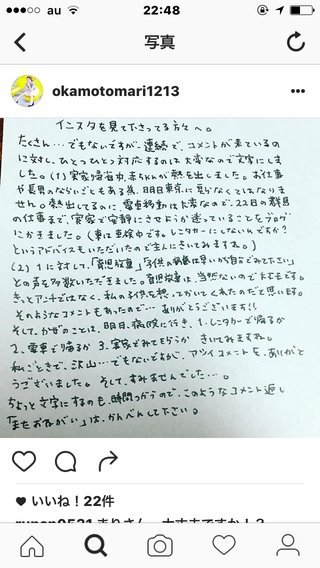 au 22:48
写真
okamotomari1213
インスタを見て下さってる方々へ。
たくさん…でもないですが、連続で、コメントが来ているの
に対し、ひとつひとつ対応するのは大変なので文字にしま
した。(1)実家帰省中、赤ちゃんが熱を出しました。お仕事
や長男のならいごともある為、明日東京に戻らなくてはなりま
せん。熱出してるのに、電車移動は大変なので、22日の
の仕事まで、実家で安静にさせようか迷っていることをブログ
にかきました。(車は車検中です。レンタカーにしないんですか?
というアドバイスもいただいたので主人にきいてみますね。)
(2) 1に対して、「育児放棄」「子供の
との声を多数いただきました。育児放棄は、当然ないので大丈夫です。
きっとアンチではなく、私の子供を想ってかいてくれたのだと思います。
そのようなコメントもあったので…ありがとうございます!!
そして、かぜのことは、明日、病院に行き、1.レンタカーで帰るか
2.電車で帰るか 3.実家でみてもらうか きいてみますね。
私ごときで、沢山…でもないですが、アツイコメントを、ありがと
うございました。そして、すみませんでした…。
ちょっと文字にするのも、時間つかうので、このようなコメント返し
「またおねがい」は、かんべんして下さい。
いいね!22件